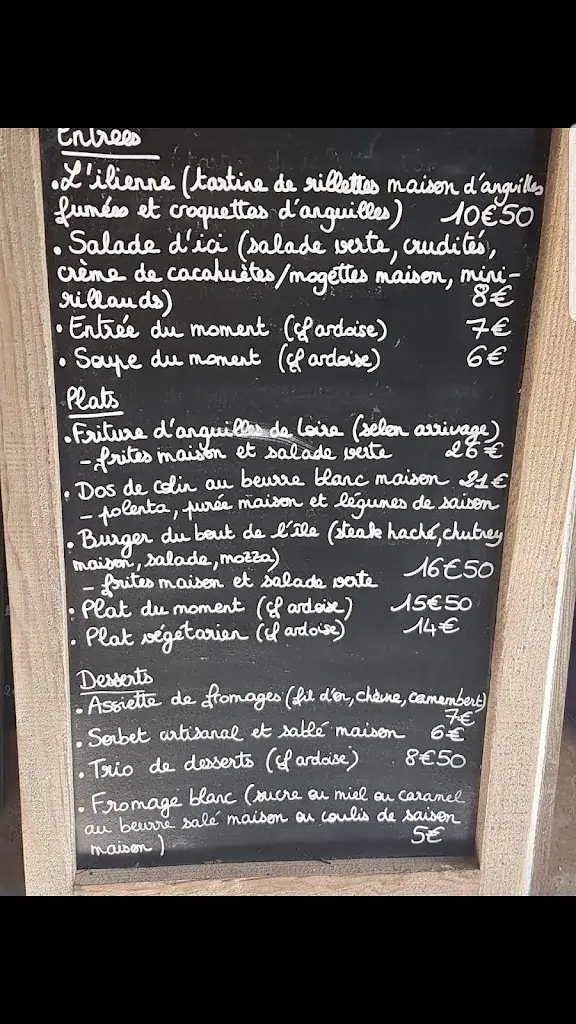 Entrées
• L'ilienne (tartine de rillettes maison d'anguilles
fumées et croquettes d'anguilles) 10€50
• Salade d'ici (salade verte, crudités,
crème de cacahuètes/mogettes maison, mini-
rillauds) 8€
• Entrée du moment (cf ardoise) 7€
• Soupe du moment (cf ardoise) 6€
Plats
• Friture d'anguilles de Loire (selon arrivage)
- frites maison et salade verte 26€
• Dos de colin au beurre blanc maison 21€
- polenta, purée maison et légumes de saison
• Burger du bout de l'île (steak haché, chutney
maison, salade, mozza)
16€50
- frites maison et salade verte
• Plat du moment (cf ardoise) 15€50
• Plat végétarien (cf ardoise) 14€
Desserts
• Assiette de fromages (fil d'or, chèvre, camembert)
7€
• Sorbet artisanal et sablé maison 6€
• Trio de desserts (cf ardoise) 8€50
• Fromage blanc (sucre ou miel ou caramel
au beurre salé maison ou coulis de saison
maison) 5€